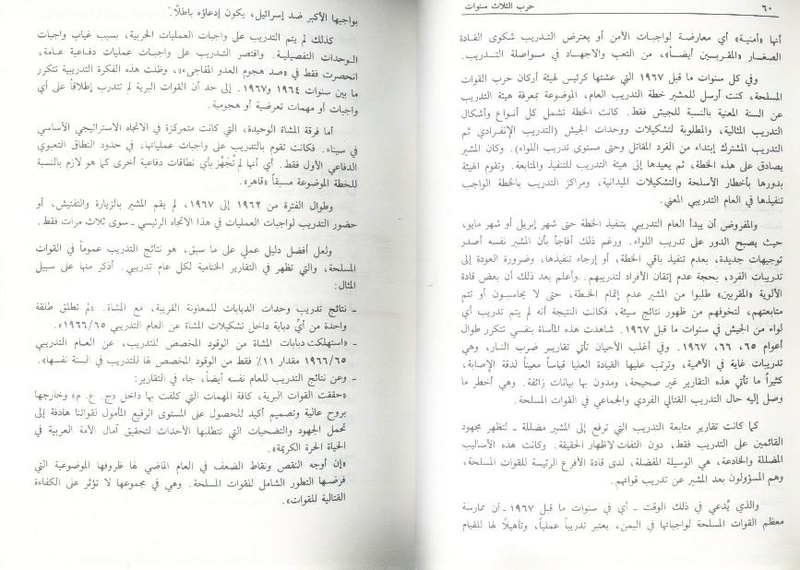 ٦٠
حرب الثلاث سنوات
أنها «أمنية» أي معارضة لواجبات الأمن أو يعترض التدريب شكوى القادة
الصغار «المقربين أيضاً»، من التعب والاجهاد في مواصلة التدريب.
وفي كل سنوات ما قبل ١٩٦٧ التي عشتها كرئيس لهيئة أركان حرب القوات
المسلحة، كنت أرسل للمشير خطة التدريب العام، الموضوعة بمعرفة هيئة التدريب
عن السنة المعنية بالنسبة للجيش فقط. كانت الخطة تشمل كل أنواع وأشكال
التدريب المثالية، والمطلوبة لتشكيلات ووحدات الجيش (التدريب الإنفرادي ثم
التدريب المشترك إبتداء من الفرد المقاتل وحتى مستوى تدريب اللواء). وكان المشير
يصادق على هذه الخطة، ثم يعيدها إلى هيئة التدريب للتنفيذ والمتابعة. وتقوم الهيئة
بدورها بأخطار الأسلحة والتشكيلات الميدانية، ومراكز التدريب بالخطة الواجب
تنفيذها في العام التدريبي المعني.
والمفروض أن يبدأ العام التدريبي بتنفيذ الخطة حتى شهر إبريل أو شهر مايو،
حيث يصبح الدور على تدريب اللواء. ورغم ذلك أفاجأ بأن المشير نفسه أصدر
توجيهات جديدة، بعدم تنفيذ باقي الخطة، أو إرجاء تنفيذها، وضرورة العودة إلى
تدريبات الفرد، بحجة عدم إتقان الأفراد لتدريبهم. وأعلم بعد ذلك أن بعض قادة
الألوية «المقربين» طلبوا من المشير عدم إتمام الخطة، حتى لا يحاسبون أو تتم
متابعتهم، لتخوفهم من ظهور نتائج سيئة، فكانت النتيجة أنه لم يتم تدريب أي
لواء من الجيش في سنوات ما قبل ١٩٦٧. شاهدت هذه المأساة بنفسي تتكرر طوال
أعوام ٦٥، ٦٦، ١٩٦٧. وفي أغلب الأحيان تأتي تقارير ضرب النار، وهي
تدريبات غاية في الأهمية، وترتب عليها القيادة العليا قياساً معيناً لدقة الإصابة،
كثيراً ما تأتي هذه التقارير غير صحيحة، ومدون بها بيانات زائفة. وهي أخطر ما
وصل إليه حال التدريب القتالي الفردي والجماعي في القوات المسلحة.
كما كانت تقارير متابعة التدريب التي ترفع إلى المشير مضللة ـ لتظهر مجهود
القائمين على التدريب فقط، دون التفات لاظهار الحقيقة. وكانت هذه الأساليب
المضللة والخادعة، هي الوسيلة المفضلة، لدى قادة الأفرع الرئيسة للقوات المسلحة،
وهم المسؤولون بعد المشير عن تدريب قواتهم.
والذي يُدعى في ذلك الوقت ـ أي في سنوات ما قبل ١٩٦٧ ـ أن ممارسة
معظم القوات المسلحة لواجباتها في اليمن، يعتبر تدريباً عملياً، وتأهيلاً لها للقيام
بواجبها الأكبر ضد إسرائيل، يكون إدعاؤه باطلاً.
كذلك لم يتم التدريب على واجبات العمليات الحربية، بسبب غياب واجبات
الوحدات التفصيلية. واقتصر التدريب على واجبات عمليات دفاعية عامة،
انحصرت فقط في «صد هجوم العدو المفاجىء»، وظلت هذه الفكرة التدريبية تتكرر
ما بين سنوات ١٩٦٤ و١٩٦٧. إلى حد أن القوات البرية لم تتدرب إطلاقاً على أي
واجبات أو مهمات تعرضية أو هجومية.
أما فرقة المشاة الوحيدة، التي كانت متمركزة في الاتجاه الاستراتيجي الأساسي
في سيناء، فكانت تقوم بالتدريب على واجبات عملياتها، في حدود النطاق التعبوي
الدفاعي الأول فقط. أي أنها لم تُجهّز بأي نطاقات دفاعية أخرى كما هو لازم بالنسبة
للخطة الموضوعة مسبقاً «قاهر».
وطوال الفترة من ١٩٦٢ إلى ١٩٦٧، لم يقم المشير بالزيارة والتفتيش، أو
حضور التدريب لواجبات العمليات في هذا الاتجاه الرئيسي ـ سوى ثلاث مرات فقط.
ولعل أفضل دليل عملي على ما سبق، هو نتائج التدريب عموماً في القوات
المسلحة، والتي تظهر في التقارير الختامية لكل عام تدريبي. أذكر منها على سبيل
المثال:
ـ نتائج تدريب وحدات الدبابات للمعاونة القريبة، مع المشاة. «لم تطلق طلقة
واحدة من أيِّ دبابة داخل تشكيلات المشاة عن العام التدريبي ١٩٦٦/٦٥».
ـ «استهلكت دبابات المشاة من الوقود المخصص للتدريب، عن العام التدريبي
١٩٦٦/٦٥ مقدار ١١٪ فقط من الوقود المخصص لها للتدريب في السنة نفسها».
ـ وعن نتائج التدريب للعام نفسه أيضاً، جاء في التقارير:
«حققت القوات البرية، كافة المهمات التي كلفت بها داخل (ج. ع. م) وخارجها
بروح عالية وتصميم أكيد للحصول على المستوى الرفيع المأمول لقواتنا هادفة إلى
تحمل الجهود والتضحيات التي تتطلبها الأحداث لتحقيق آمال الأمة العربية في
الحياة الحرة الكريمة».
«إن أوجه النقص ونقاط الضعف في العام الماضي لها ظروفها الموضوعية التي
فرضها التطور الشامل للقوات المسلحة. وهي في مجموعها لا تؤثر على الكفاءة
القتالية للقوات».